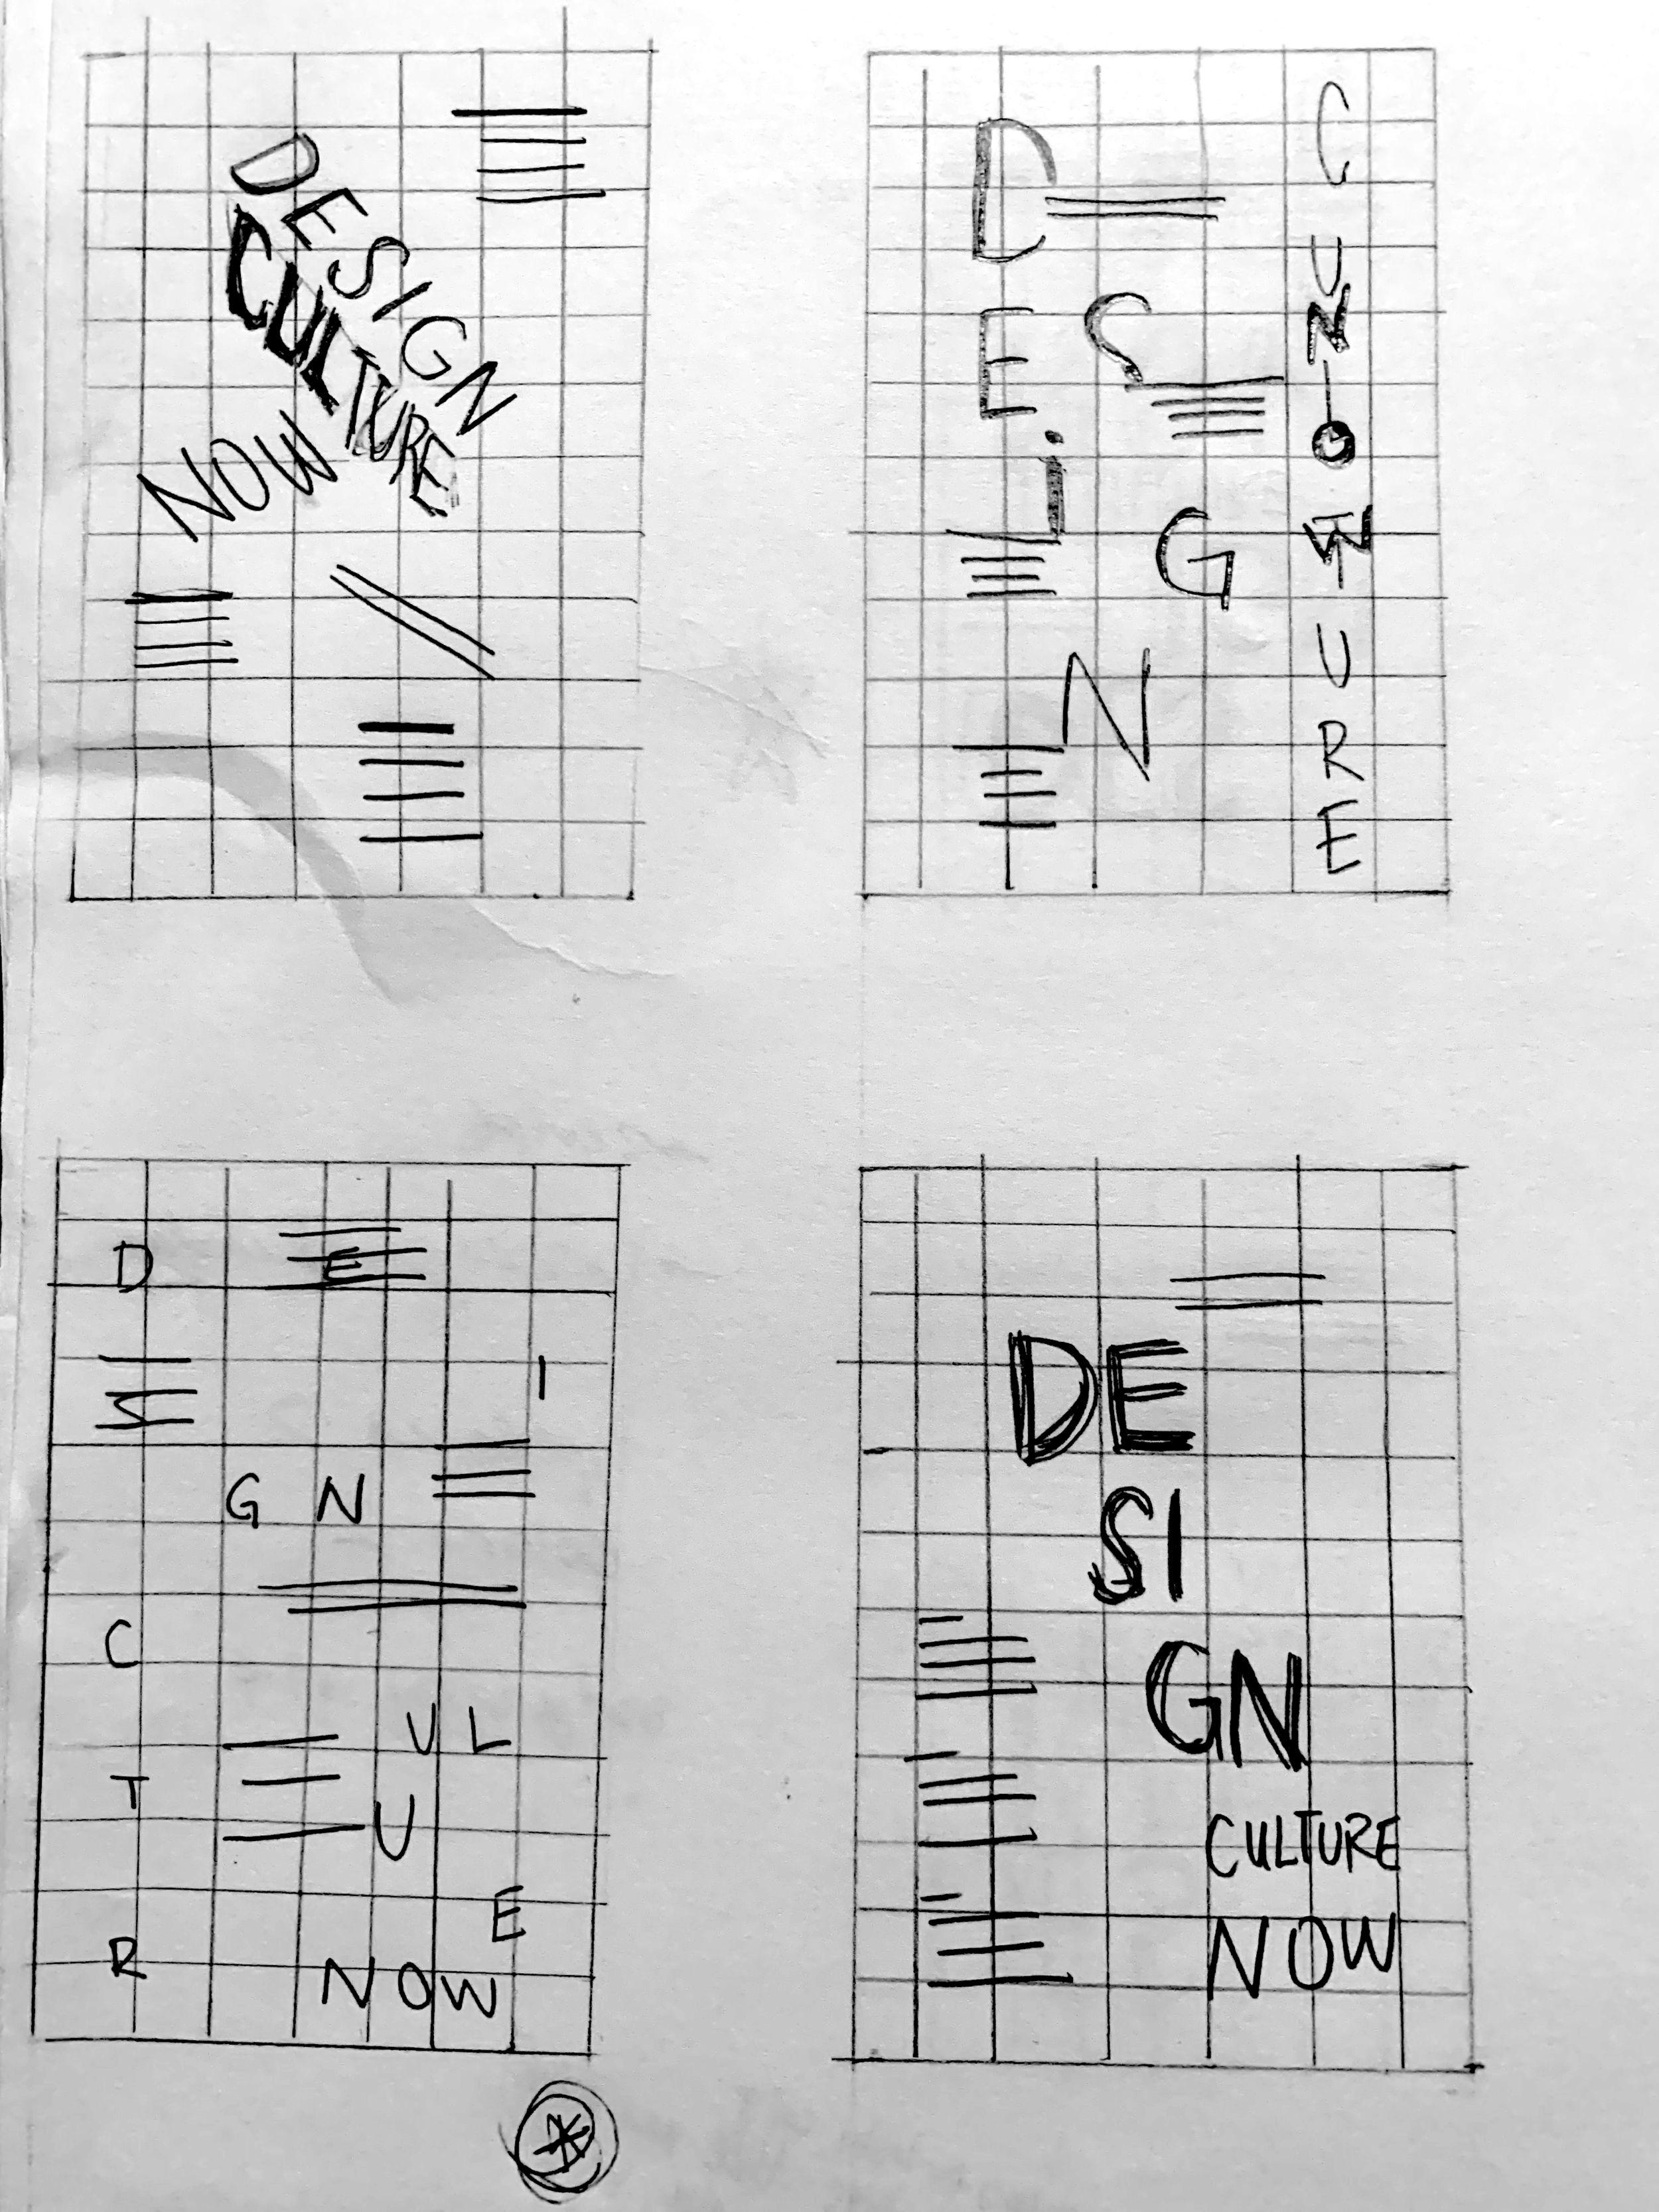 DESIGN
CULTURE
NOW
D
E S
i G
N
CULTURE
NOW
D E
S I
G N
C
U L
T U
R E
NOW
DE
SI
GN
CULTURE
NOW